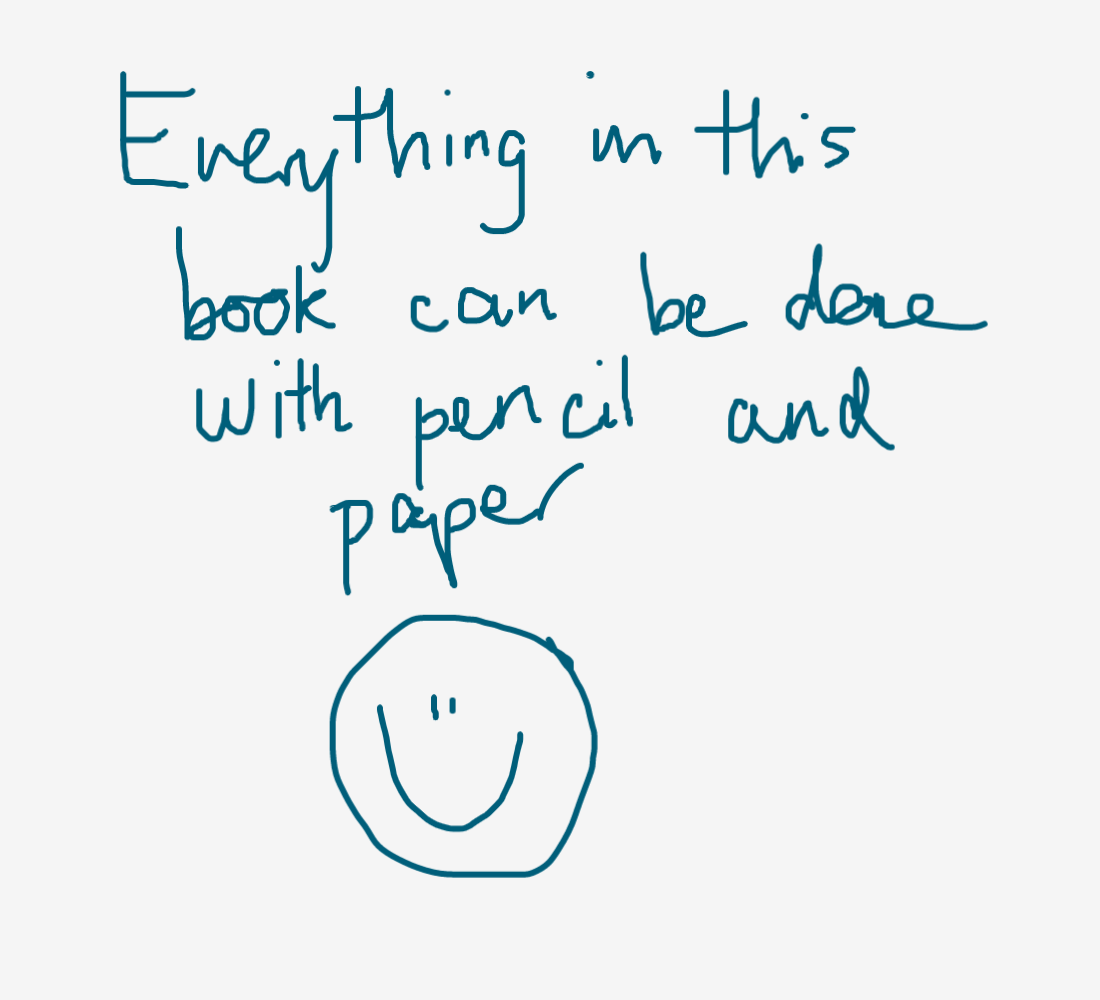 Everything in this
book can be done
with pencil and
paper